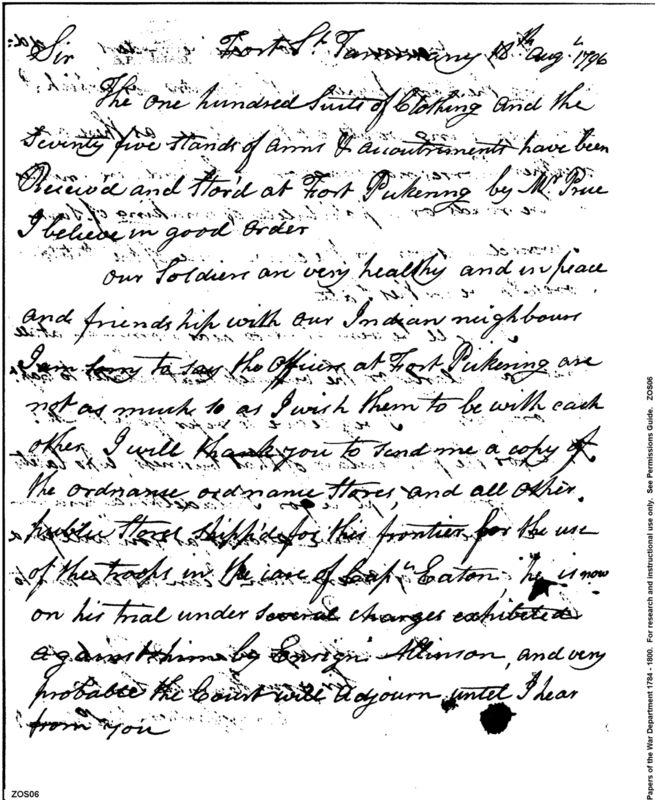 Sir Fort St. Tammany 18th Augt 1796
The one hundred Suits of Clothing and the
seventy five stands of arms & accoutrements have been
Received and stor'd at Fort Pickering by Mr Prue
I believe in good order
our Soldiers are very healthy and in peace
and friendship with our Indian neighbours
I am sorry to say the Officers at Fort Pickering are
not as much so as I wish them to be with each
other, I will thank you to send me a copy of
the ordnance, ordnance stores, and all other
public stores shipp'd for this frontier for the use
of the troops in the care of Capn Eaton, he is now
on his trial under several charges exhibited
against him by Ensign Allinson, and very
probable the Court will adjourn until I hear
from you
ZOS06
Papers of the War Department 1784 - 1800. For research and instructional use only. See Permissions Guide. ZOS06